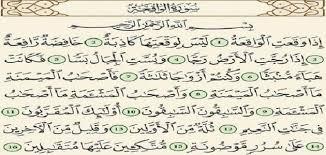 سُورَةُ الوَاقِعَةِ
بِسْمِ ٱللَّهِ ٱلرَّحْمَٰنِ ٱلرَّحِيمِ
إِذَا وَقَعَتِ ٱلْوَاقِعَةُ ١ لَيْسَ لِوَقْعَتِهَا كَاذِبَةٌ ٢ خَافِضَةٌ رَّافِعَةٌ
٣ إِذَا رُجَّتِ ٱلْأَرْضُ رَجًّا ٤ وَبُسَّتِ ٱلْجِبَالُ بَسًّا ٥ فَكَانَتْ
هَبَآءً مُّنۢبَثًّا ٦ وَكُنتُمْ أَزْوَٰجًا ثَلَٰثَةً ٧ فَأَصْحَٰبُ ٱلْمَيْمَنَةِ
مَآ أَصْحَٰبُ ٱلْمَيْمَنَةِ ٨ وَأَصْحَٰبُ ٱلْمَشْـَٔمَةِ مَآ أَصْحَٰبُ ٱلْمَشْـَٔمَةِ
٩ وَٱلسَّٰبِقُونَ ٱلسَّٰبِقُونَ ١٠ أُو۟لَٰٓئِكَ ٱلْمُقَرَّبُونَ ١١
فِى جَنَّٰتِ ٱلنَّعِيمِ ١٢ ثُلَّةٌ مِّنَ ٱلْأَوَّلِينَ ١٣ وَقَلِيلٌ مِّنَ ٱلْءَاخِرِينَ
١٤ عَلَىٰ سُرُرٍ مَّوْضُونَةٍ ١٥ مُّتَّكِـِٔينَ عَلَيْهَا مُتَقَٰبِلِينَ ١٦